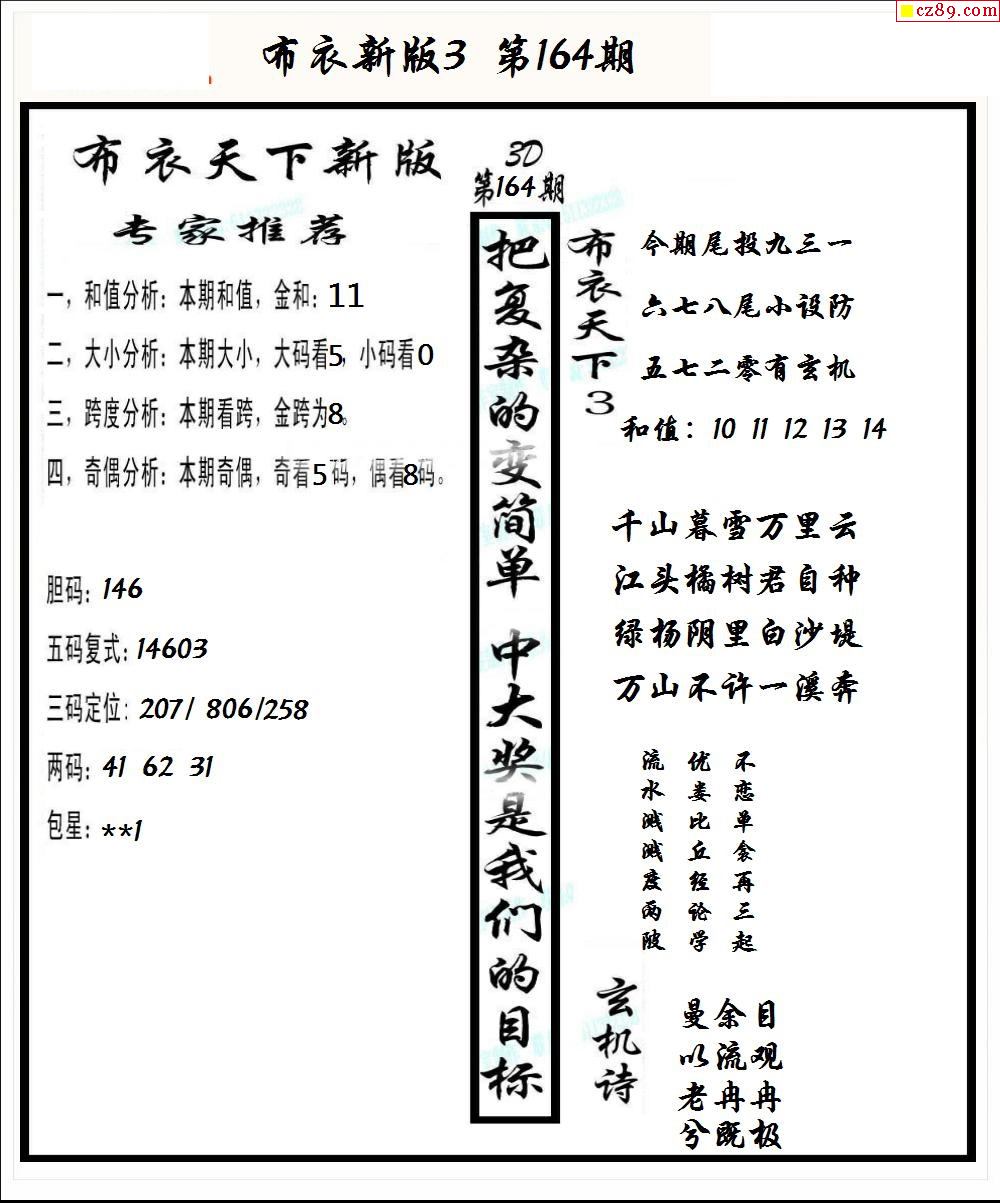 cz89.com
布衣新版3 第164期
布衣天下新版
专家推荐
一，和值分析：本期和值，金和：11
二，大小分析：本期大小，大码看5，小码看0
三，跨度分析：本期看跨，金跨为8。
四，奇偶分析：本期奇偶，奇看5码，偶看8码。
胆码：146
五码复式：14603
三码定位：207/ 806/258
两码：41 62 31
包星：**1
3D
第164期
把复杂的变简单 中大奖是我们的目标
布衣天下3
今期尾投九三一
六七八尾小设防
五七二零有玄机
和值：10 11 12 13 14
千山暮雪万里云
江头橘树君自种
绿杨阴里白沙堤
万山不许一溪奔
不恋单衾再三起
优娄比丘经论学
流水溅溅度两陂
玄机诗
曼余目
以流观
老冉冉
兮既极